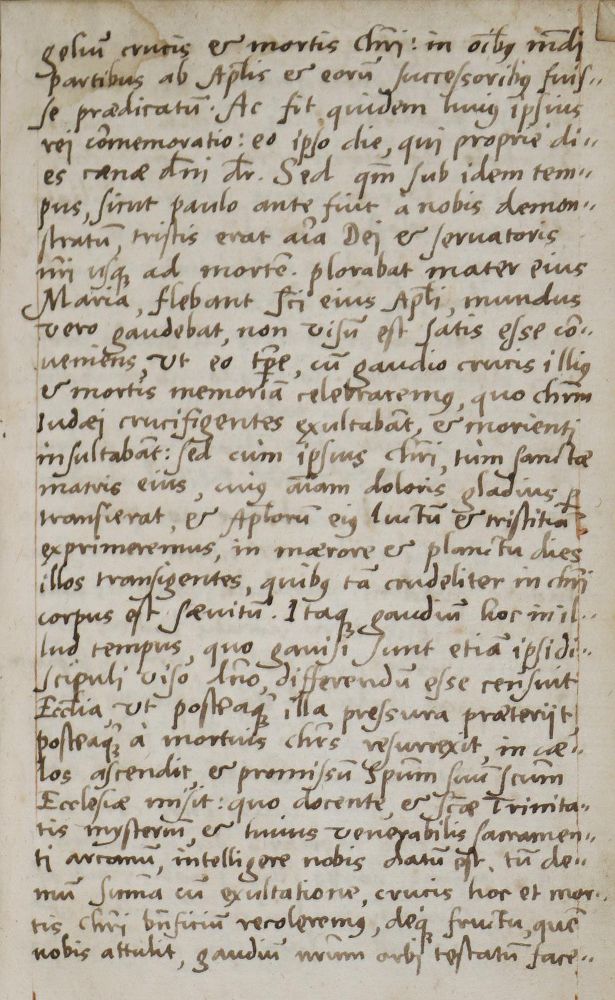 geliũ crucis & mortis Chr̃i: in oĩbꝯ mũdi
partibus ab Apl̃is & eorũ successoribꝯ fuis=
se prædicatũ. Ac fit quidem huiꝯ ipsius
rei cõmemoratio: eo ipso die, qui proprie di=
es cænæ dñi dr̃. Sed qm̃ sub idem tem=
pus, sicut paulo ante fuit à nobis demon=
stratũ, tristis erat aĩa Dei & servatoris
nr̃i usqꝫ ad mortẽ. plorabat mater eius
Maria, flebant Sc̃i eius Apl̃i, mundus
vero gaudebat, non visũ est satis esse cõ=
veniens, ut eo tp̃re, cũ gaudio crucis illiꝯ
& mortis memoriã celebraremꝯ, quo chr̃m
Iudæi crucifigentes exultabãt, & morienti
insultabãt: sed cùm ipsius chr̃i, tùm sanctæ
matris eius, cuiꝯ aĩam doloris gladius ꝑ
transierat, & Apl̃orũ eiꝯ luctũ & tristitiã
exprimeremus, in mærore & planctu dies
illos transigentes, quibꝯ tã crudeliter in chr̃i
corpus est sævitũ. Itaqꝫ gaudiũ hoc in il=
lud tempus, quo gavisi sunt etiã ipsi di=
scipuli viso dño, differendũ esse censuit
Eccl̃ia, ut posteaqꝫ̃ illa pressura præterijt,
posteaqꝫ̃ à mortuis chr̃s resurrexit, in cæ=
los ascendit, & promissũ Spũm suũ scũm
Ecclesiæ misit: quo docente & sc̃æ Trinita=
tis mysteriũ, & huius venerabilis sacramen=
ti arcanũ, intelligere nobis datũ est, tũ de=
mũ sum̃a cũ exultatione, crucis hoc et mor=
tis chr̃i bñficiũ recoleremꝯ, deqꝫ fructu, quẽ
nobis attulit, gaudiũ nr̃um orbi testatũ face=